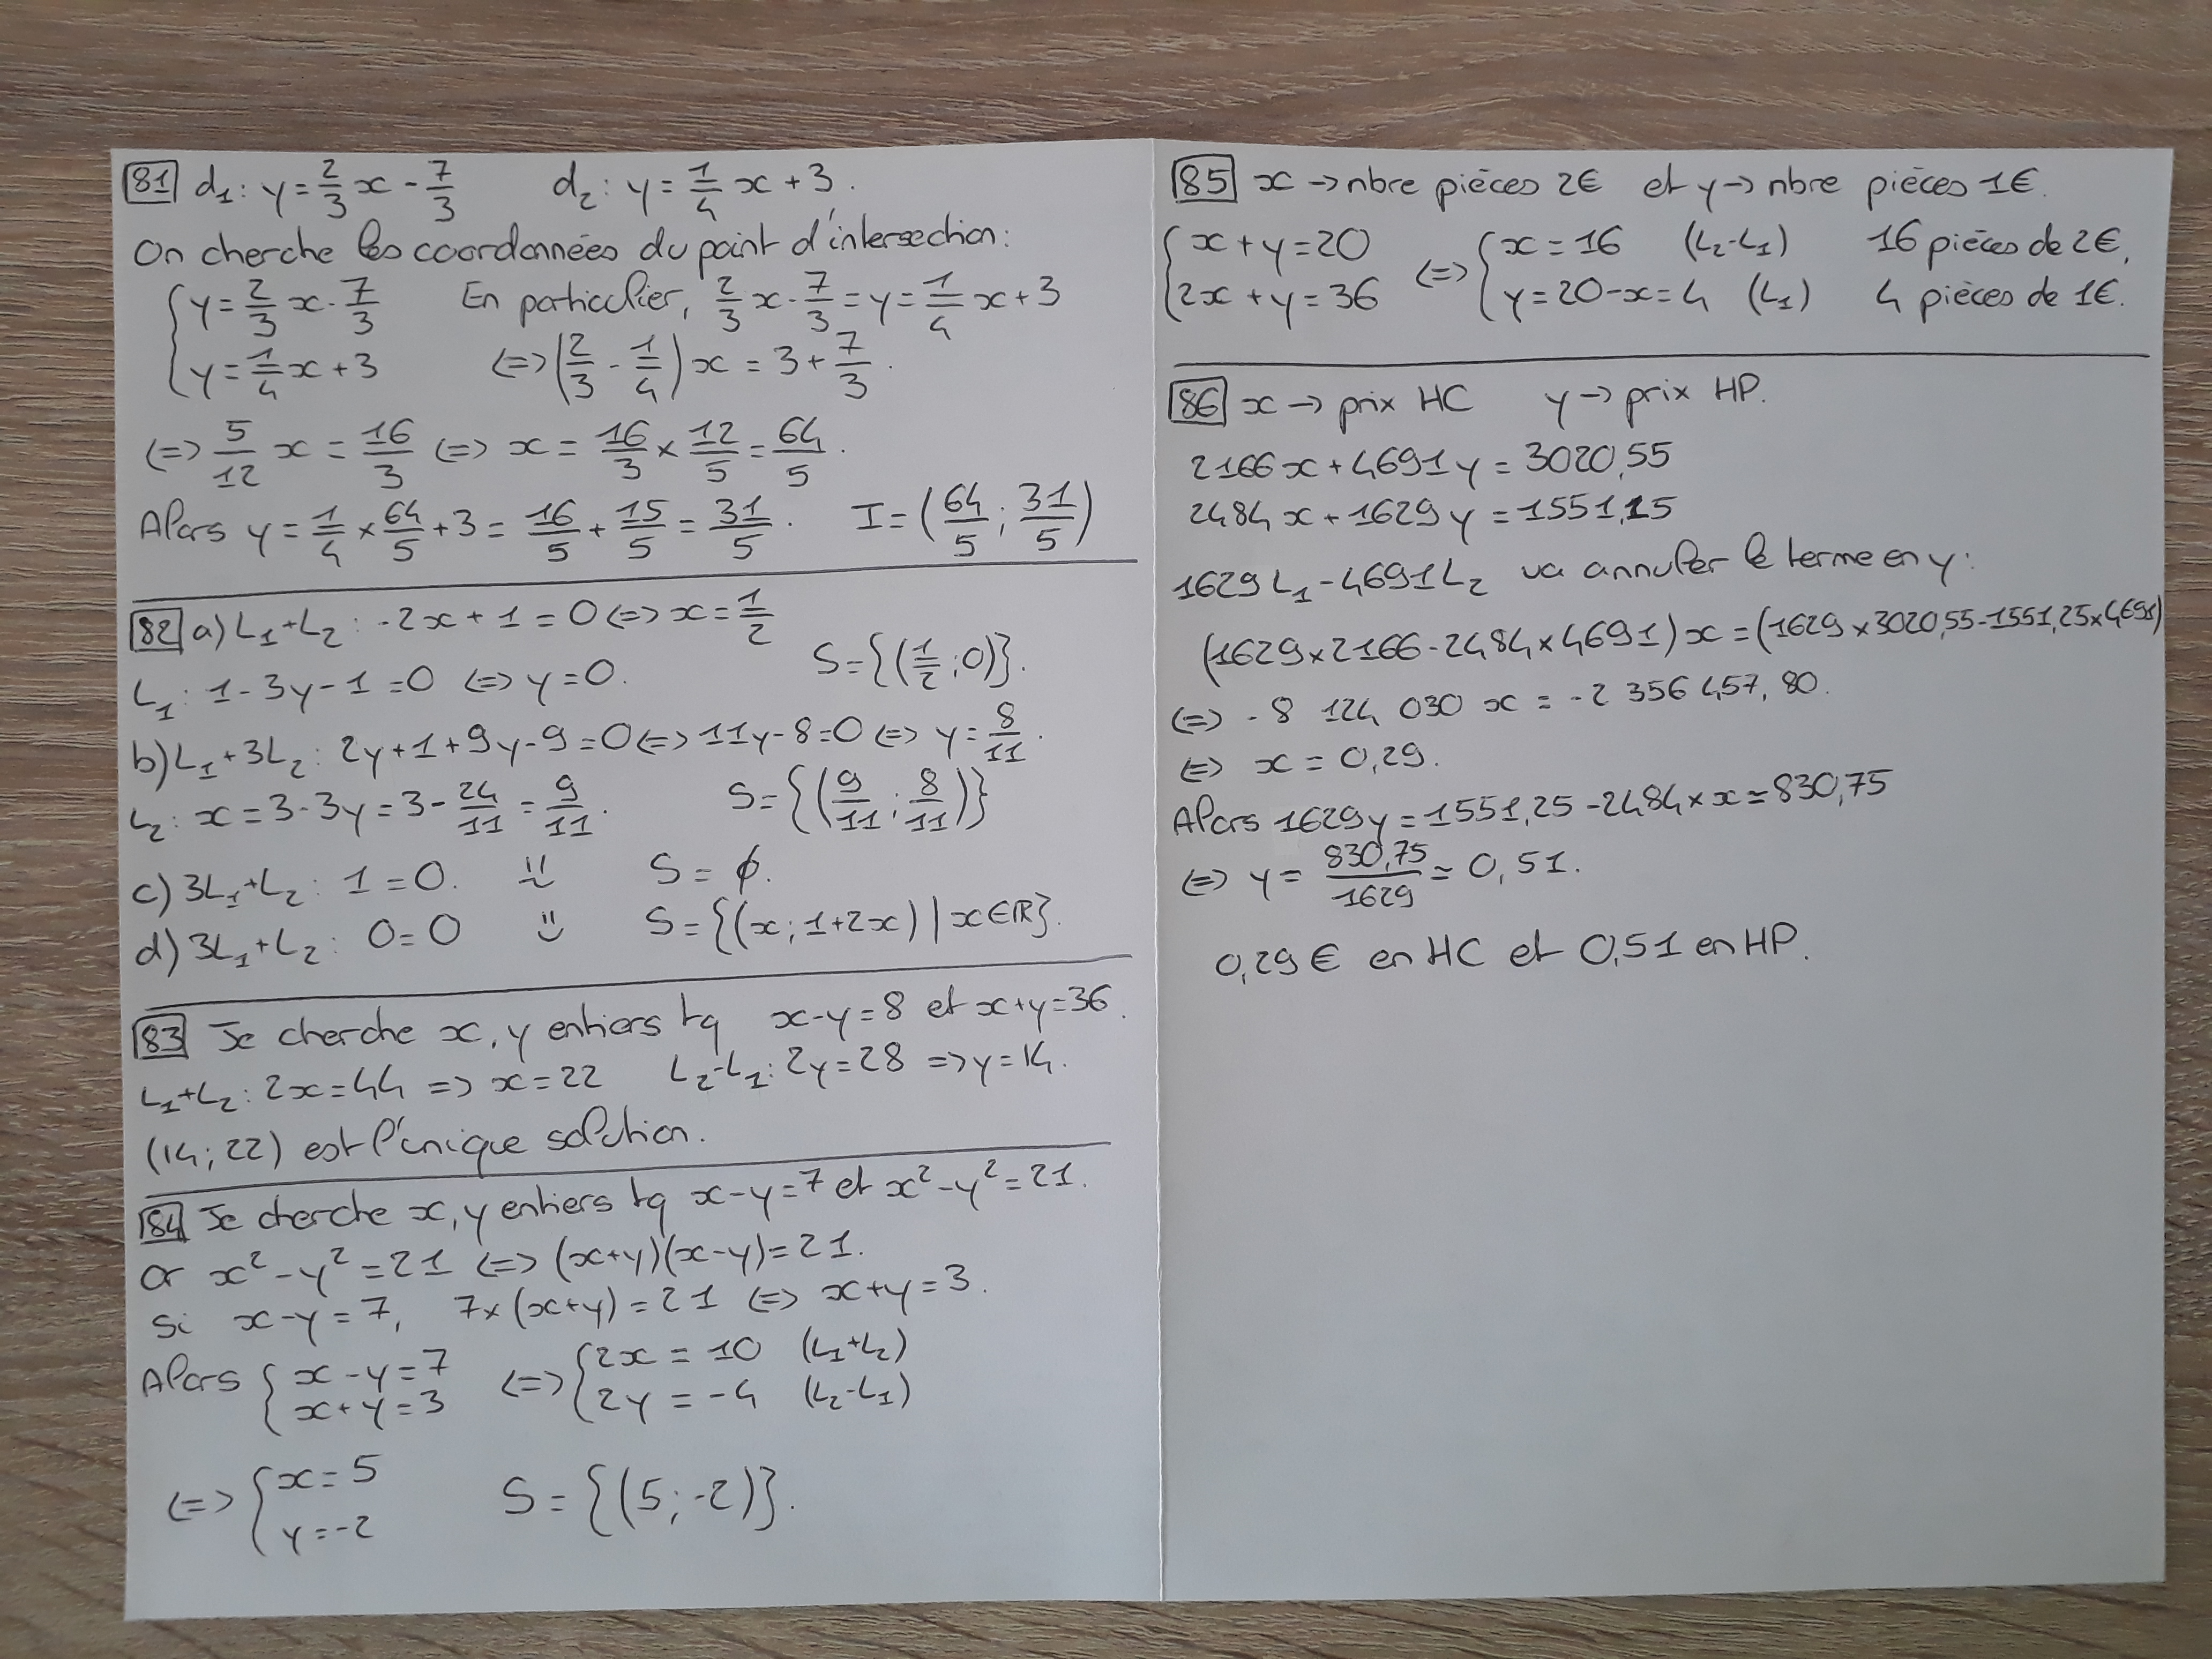 81 d₁: y = 2/3 x - 7/3 d₂: y = 1/4 x + 3.
On cherche les coordonnées du point d'intersection:
{ y = 2/3 x - 7/3 En particulier, 2/3 x - 7/3 = y = 1/4 x + 3
{ y = 1/4 x + 3 <=> (2/3 - 1/4) x = 3 + 7/3.
<=> 5/12 x = 16/3 <=> x = 16/3 × 12/5 = 64/5.
Alors y = 1/4 × 64/5 + 3 = 16/5 + 15/5 = 31/5. I = (64/5 ; 31/5)
82 a) L₁+L₂ : -2x + 1 = 0 <=> x = 1/2
L₁ : 1 - 3y - 1 = 0 <=> y = 0. S = {(1/2 ; 0)}.
b) L₁+3L₂ : 2y + 1 + 9y - 9 = 0 <=> 11y - 8 = 0 <=> y = 8/11.
L₂ : x = 3 - 3y = 3 - 24/11 = 9/11. S = {(9/11 ; 8/11)}
c) 3L₁+L₂ : 1 = 0. S = ∅.
d) 3L₁+L₂ : 0 = 0 S = {(x ; 1+2x) | x ∈ ℝ}.
83 Je cherche x, y entiers tq x-y = 8 et x+y = 36.
L₁+L₂ : 2x = 44 => x = 22 L₂-L₁ : 2y = 28 => y = 14.
(14 ; 22) est l'unique solution.
84 Je cherche x, y entiers tq x-y = 7 et x² - y² = 21.
Or x² - y² = 21 <=> (x+y)(x-y) = 21.
Si x-y = 7, 7×(x+y) = 21 <=> x+y = 3.
Alors { x - y = 7 <=> { 2x = 10 (L₁+L₂)
{ x + y = 3 { 2y = -4 (L₂-L₁)
<=> { x = 5 S = {(5 ; -2)}.
{ y = -2
85 x → nbre pièces 2€ et y → nbre pièces 1€.
{ x + y = 20 <=> { x = 16 (L₂-L₁) 16 pièces de 2€,
{ 2x + y = 36 { y = 20-x = 4 (L₁) 4 pièces de 1€.
86 x → prix HC y → prix HP.
2166x + 4691y = 3020,55
2484x + 1629y = 1551,25
1629L₁ - 4691L₂ va annuler le terme en y :
(1629×2166 - 2484×4691)x = (1629×3020,55 - 1551,25×4691)
<=> -8 124 030 x = -2 356 457,80.
<=> x = 0,29.
Alors 1629y = 1551,25 - 2484×x = 830,75
<=> y = 830,75/1629 = 0,51.
0,29€ en HC et 0,51 en HP.